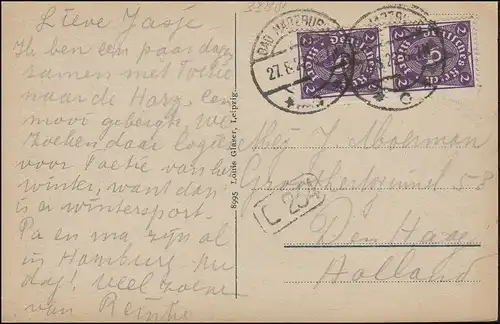 Lieve Jasje
Ik ben een paar dag
samen met Toetie
naar de Harz, een
mooi gebergte. We
zoeken daar logies
voor Toetie van het
winter, want dan
is er wintersport.
Pa en ma zijn al
in Hamburg. Nu
dag! Veel zoene
van
8995 Louis Glaser, Leipzig.
BAD HARZBURG
27.6.2
Deutsches Reich
2
Deutsches Reich
2
Mej J Moerman
58
Den Haag
Holland
C 204